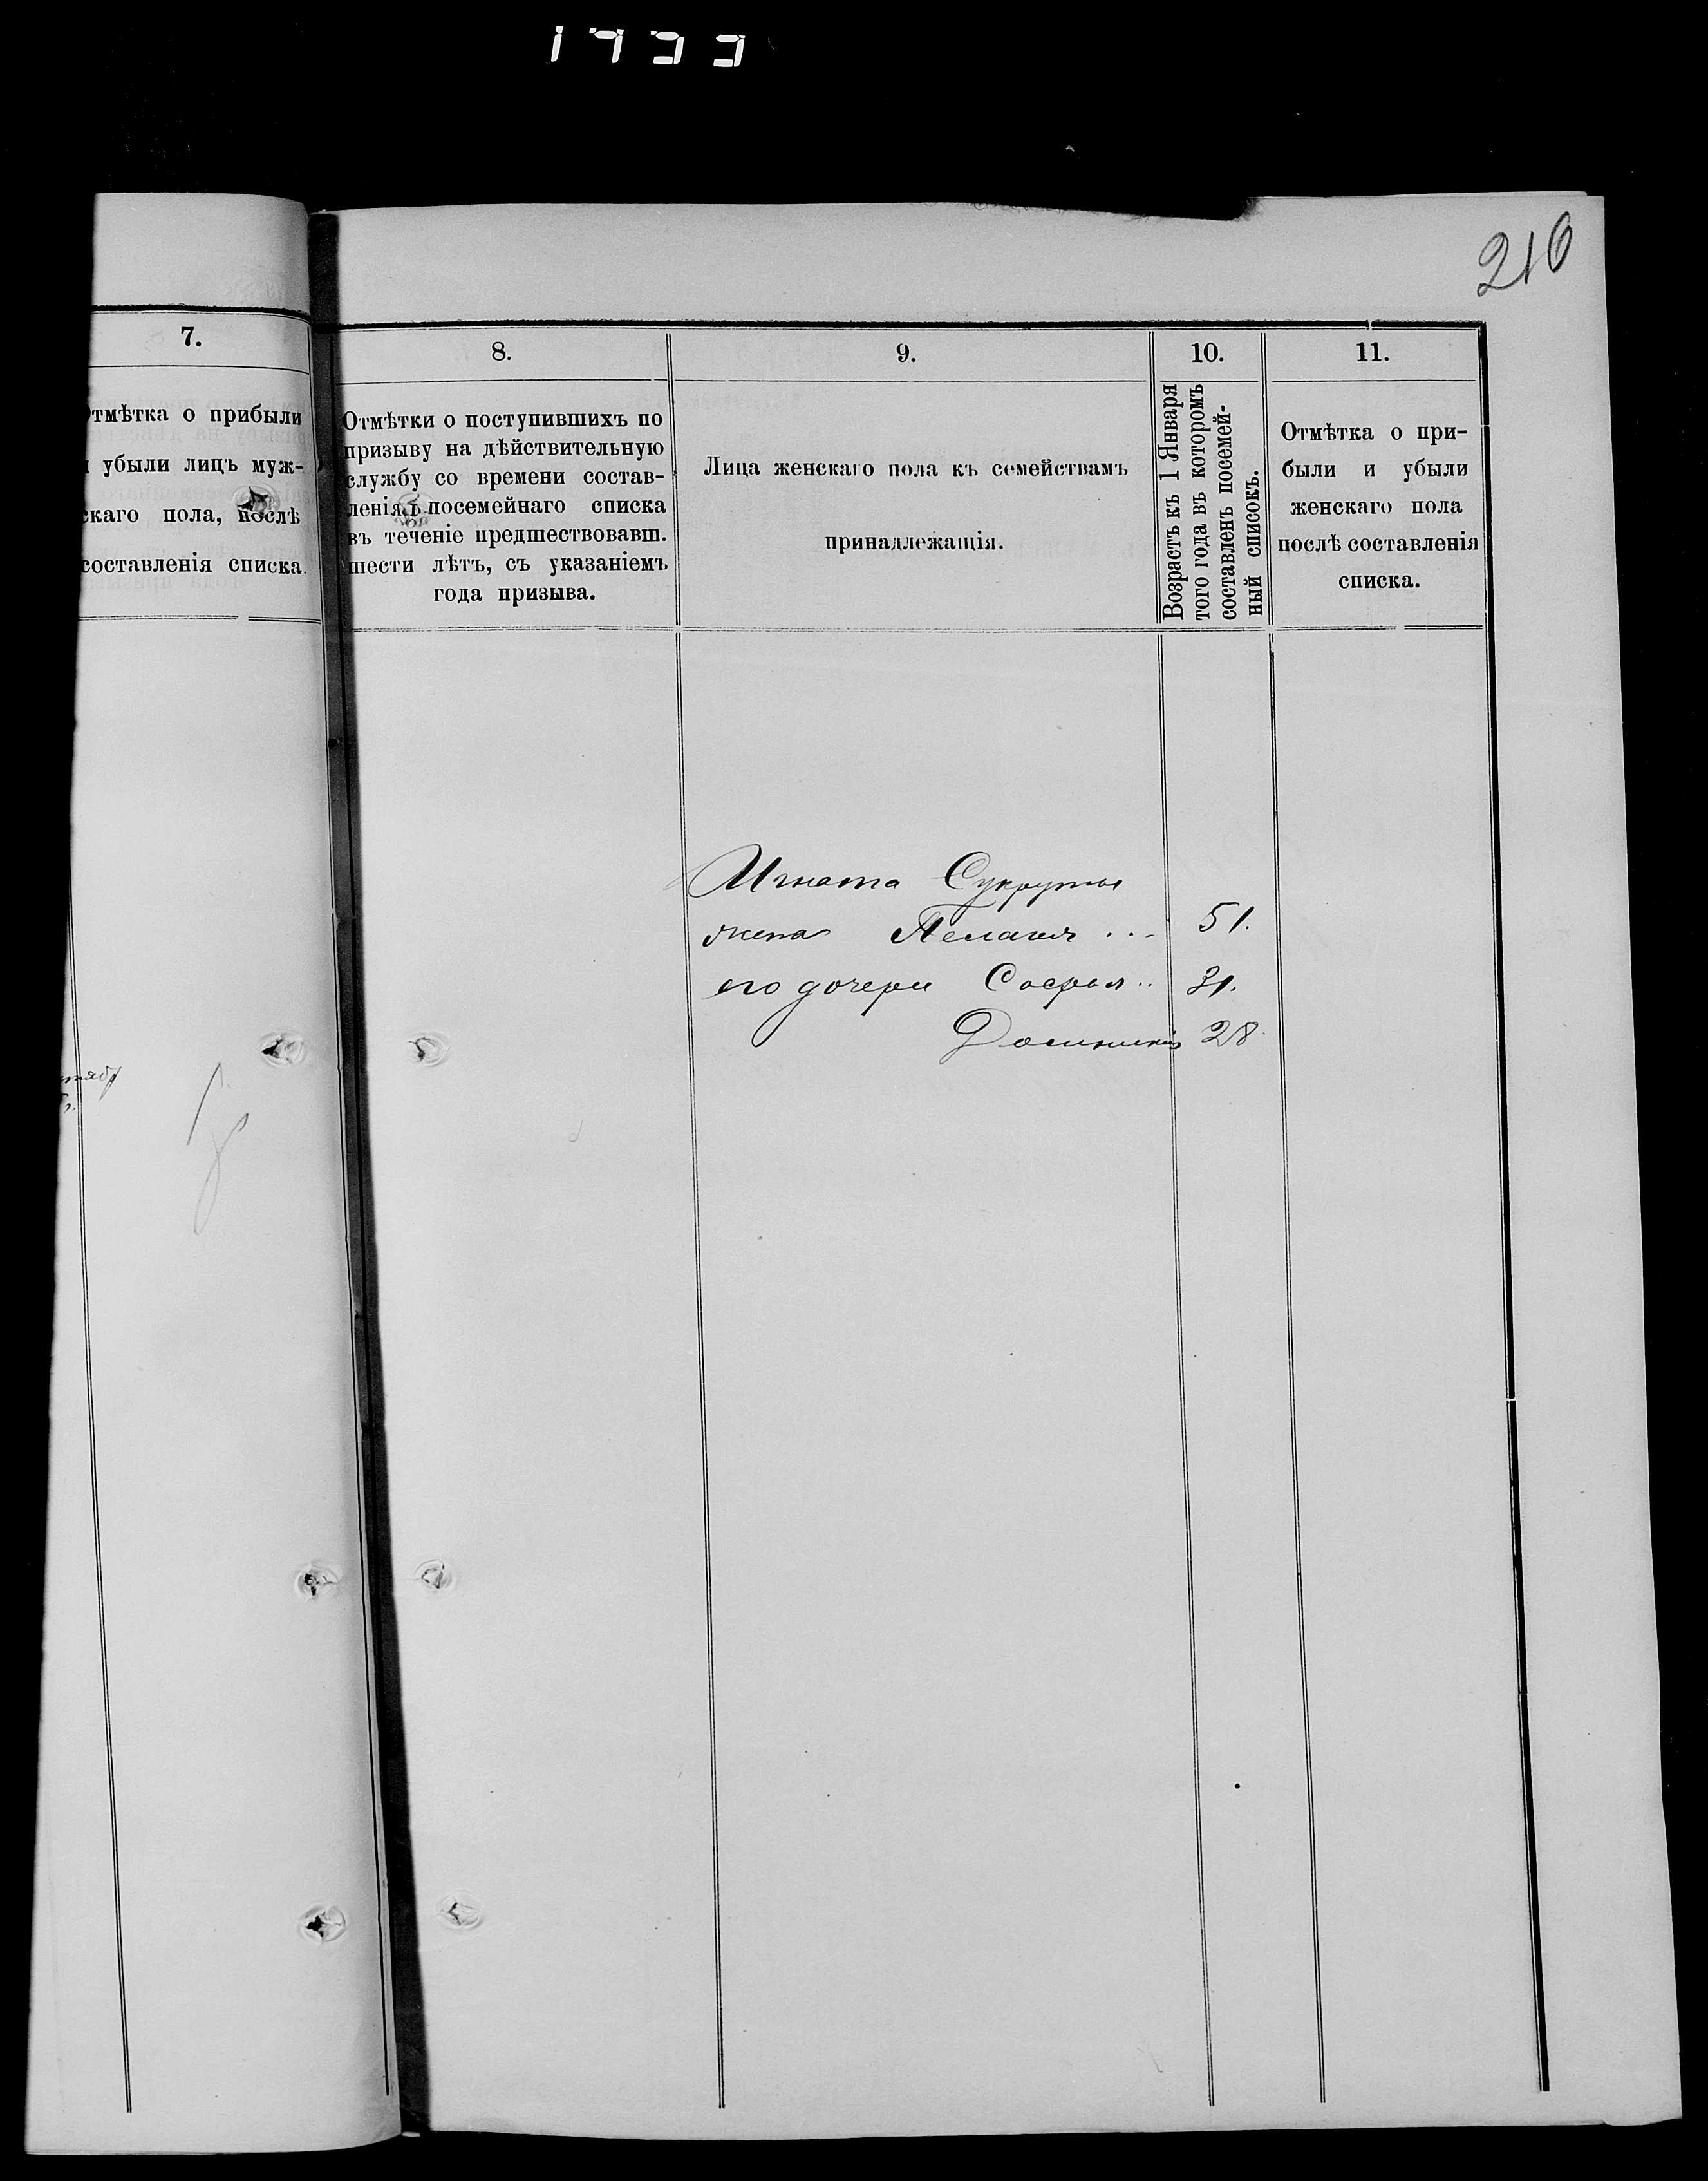 1733
210
7.
Отмѣтка о прибыли
и убыли лицъ муж-
скаго пола, послѣ
составленія списка.
8.
Отмѣтки о поступившихъ по
призыву на дѣйствительную
службу со времени состав-
ленія посемейнаго списка
въ теченіе предшествовавш.
шести лѣтъ, съ указаніемъ
года призыва.
9.
Лица женскаго пола къ семействамъ
принадлежащія.
10.
Возрастъ къ 1 Января
того года въ которомъ
составленъ посемей-
ный списокъ.
11.
Отмѣтка о при-
были и убыли
женскаго пола
послѣ составленія
списка.
Игната
жена Пелагея ... 51.
его дочери Софья .. 31.
28